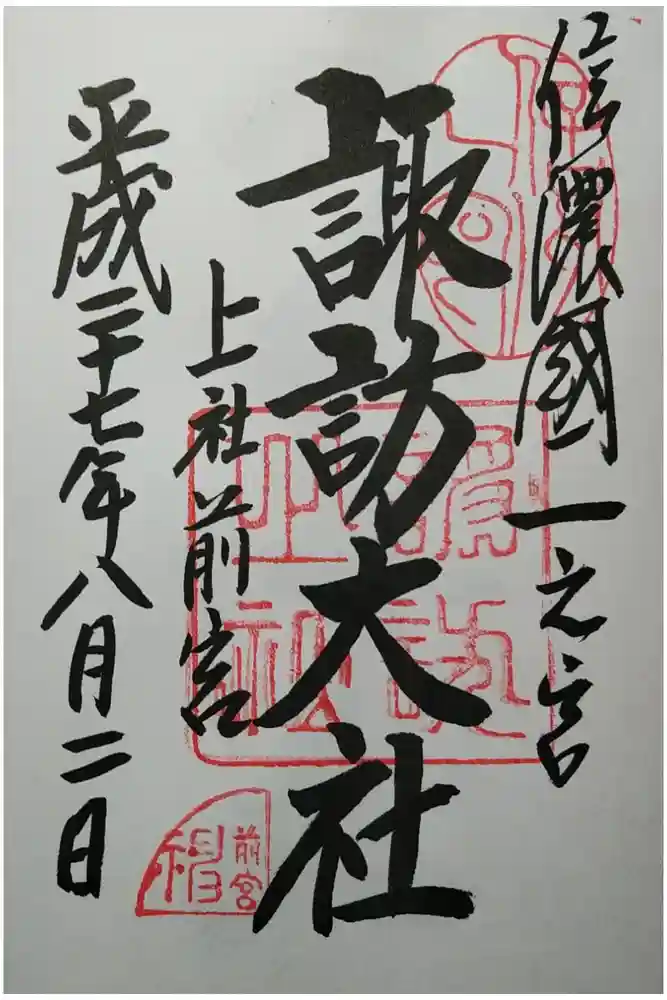 信濃國一之宮
諏訪大社
上社前宮
平成二十七年八月二日
前宮